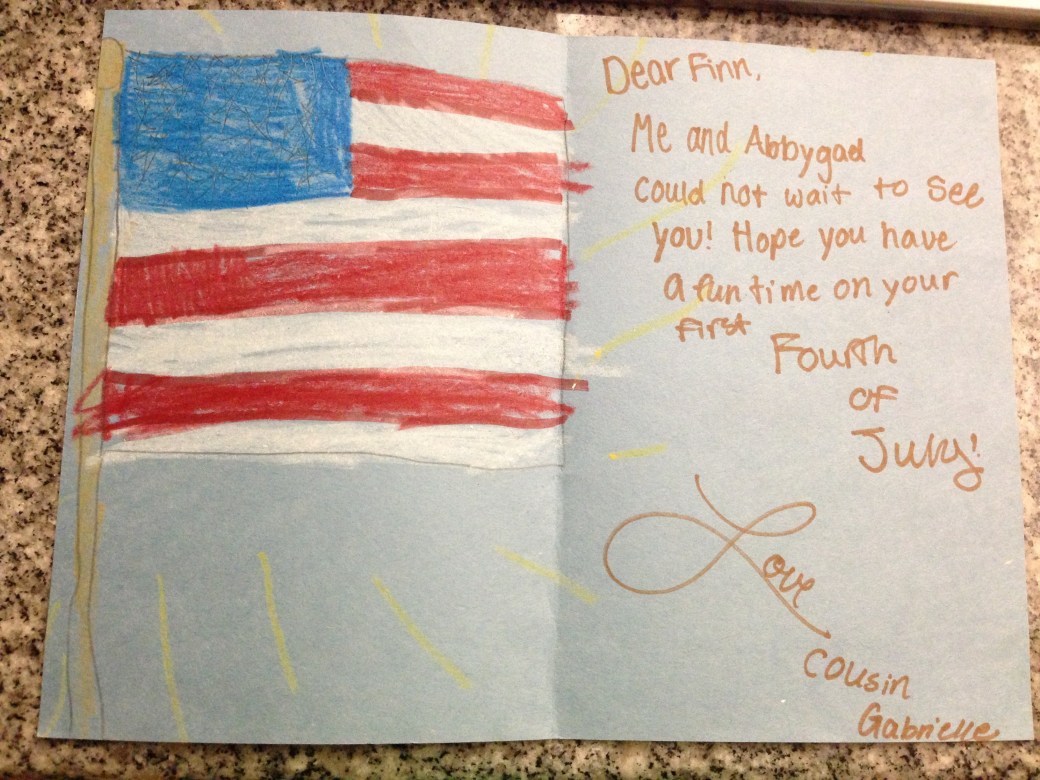 Dear Finn,
Me and Abbygad
could not wait to see
you! Hope you have
a fun time on your
first
Fourth
of
July!
Love
cousin
Gabrielle